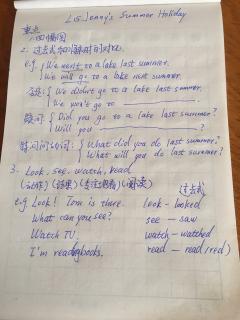 L6 Jenny's Summer Holiday
重点
1. 四情阅
2. 过去式和将来时的对比
e.g. { We went to a lake last summer.
We will go to a lake next summer.
否定: { We didn't go to a lake last summer.
We won't go to ____________.
疑问: { Did you go to a lake last summer?
Will you ____________?
特殊问句: { What did you do last summer?
What will you do last summer?
3. Look, see, watch, read
(动作) (结果) (专注观看) (阅读) 过去式
e.g Look! Tom is there. look - looked
What can you see? see - saw
Watch TV. watch - watched
I'm reading books. read - read (red)